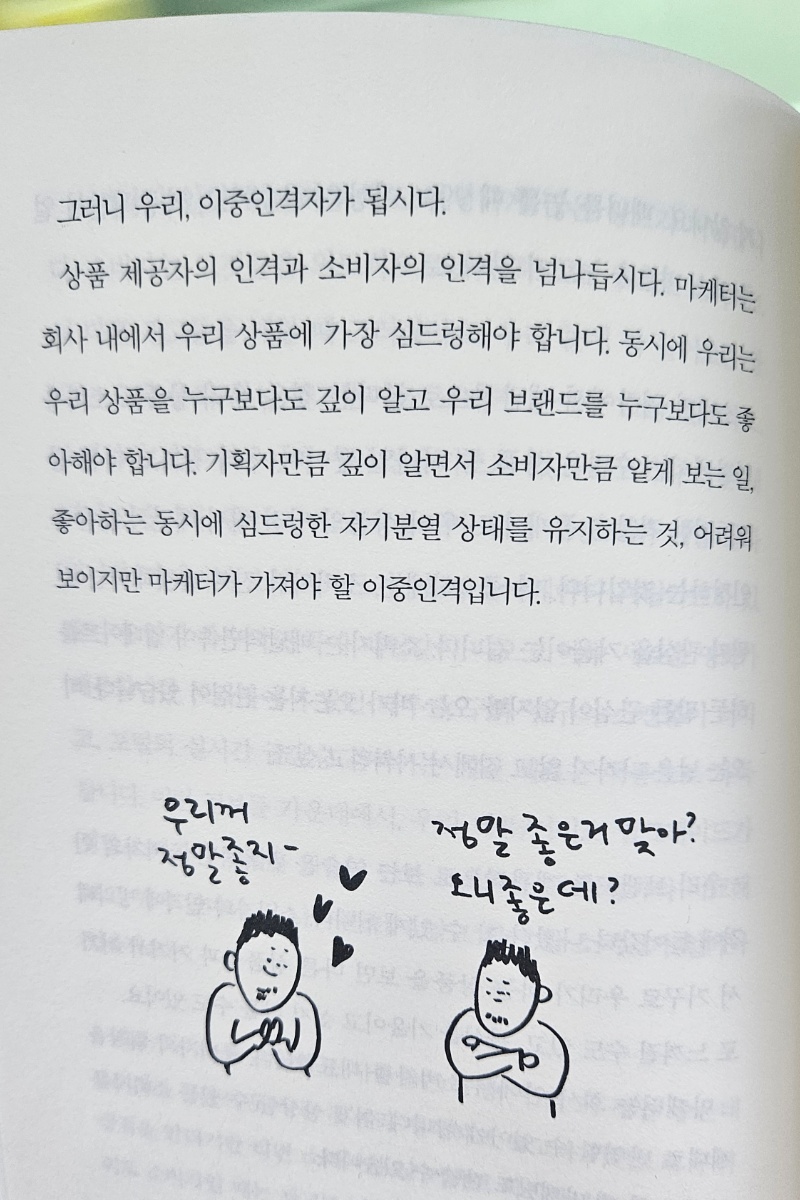 그러니 우리, 이중인격자가 됩시다.
상품 제공자의 인격과 소비자의 인격을 넘나듭시다. 마케터는
회사 내에서 우리 상품에 가장 심드렁해야 합니다. 동시에 우리는
우리 상품을 누구보다도 깊이 알고 우리 브랜드를 누구보다도 좋
아해야 합니다. 기획자만큼 깊이 알면서 소비자만큼 얕게 보는 일,
좋아하는 동시에 심드렁한 자기분열 상태를 유지하는 것, 어려워
보이지만 마케터가 가져야 할 이중인격입니다.
우리꺼
정말좋지-
정말 좋은거 맞아?
모니좋은데?